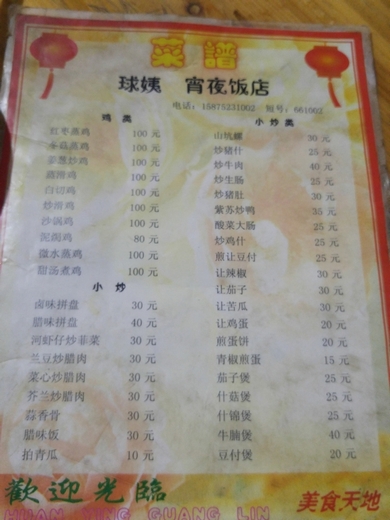 菜譜
球姨 宵夜饭店
电话：15875231002 短号：661002
鸡类
红枣蒸鸡 100 元
冬菇蒸鸡 100 元
姜葱炒鸡 100 元
酒滑鸡 100 元
白切鸡 100 元
炒滑鸡 100 元
沙锅鸡 100 元
泥焗鸡 80 元
微水蒸鸡 100 元
甜汤煮鸡 100 元
小炒
卤味拼盘 30 元
腊味拼盘 40 元
河虾仔炒韭菜 30 元
兰豆炒腊肉 30 元
菜心炒腊肉 30 元
芥兰炒腊肉 30 元
蒜香骨 30 元
腊味饭 30 元
拍青瓜 10 元
小炒类
山坑螺 30 元
炒猪什 25 元
炒牛肉 40 元
炒生肠 25 元
炒猪肚 30 元
紫苏炒鸭 35 元
酸菜大肠 25 元
炒鸡什 25 元
煎让豆付 25 元
让辣椒 30 元
让茄子 30 元
让苦瓜 30 元
让鸡蛋 20 元
煎蛋饼 20 元
青椒煎蛋 15 元
茄子煲 25 元
什菇煲 25 元
什锦煲 25 元
牛腩煲 40 元
豆付煲 20 元
歡迎光臨
HUAN YING GUANG LIN
美食天地